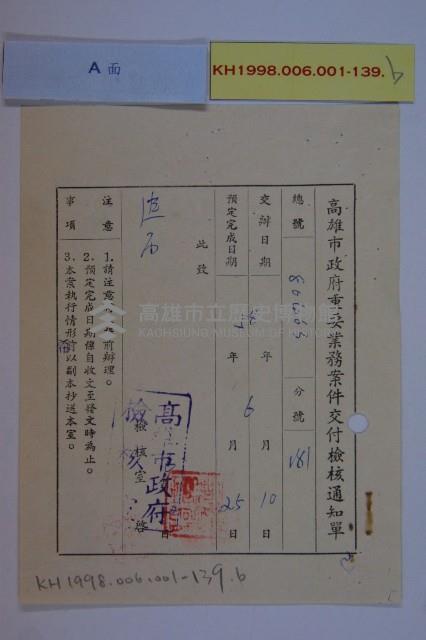 A 面
KH1998.006.001-139.b
高雄市政府重要業務案件交付檢核通知單
總號
分號 181
交辦日期 年 6 月 10 日
預定完成日期 年 月 25 日
此致
檢核室 啓
高雄市政府
注意事項
1.請注意 前辦理。
2.預定完成日期係自收文至發文時為止。
3.本案執行情形 前以副本抄送本室。
高雄市立歷史博物館
KAOHSIUNG MUSEUM OF HISTORY
KH1998.006.001-139.b